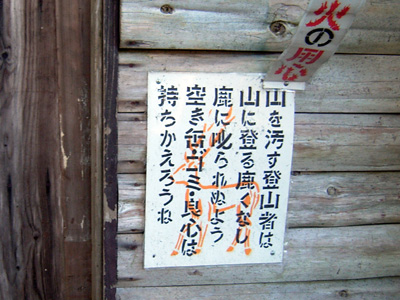 火の用心
山を汚す登山者は
山に登る鹿くなし
鹿に叱られぬよう
空き缶・ゴミ・良心は
持ちかえろうね